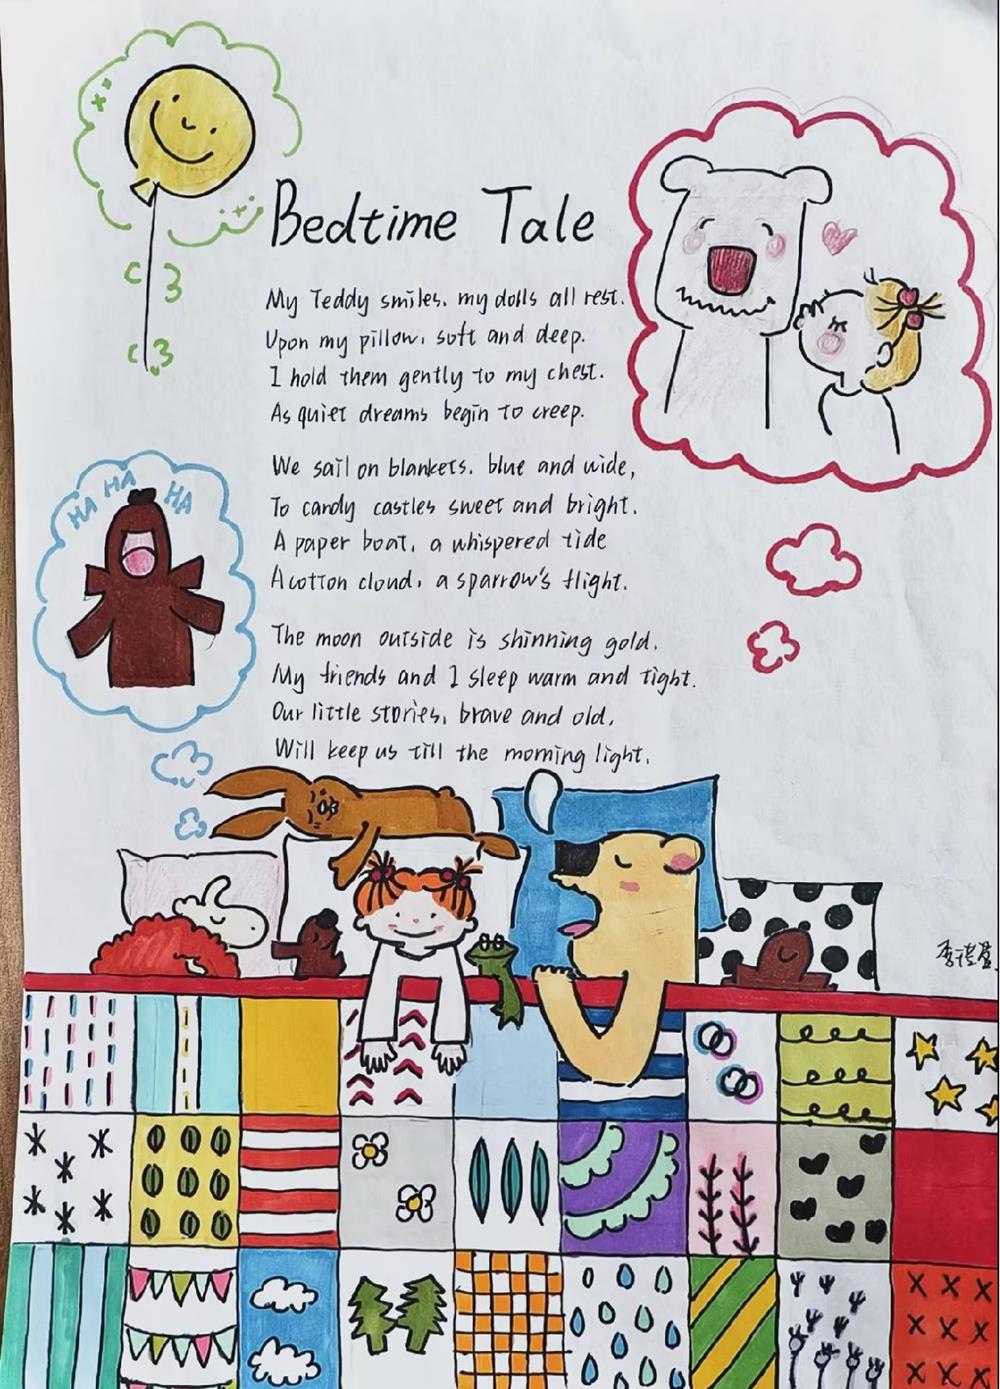 Bedtime Tale
My Teddy smiles, my dolls all rest.
Upon my pillow, soft and deep.
I hold them gently to my chest.
As quiet dreams begin to creep.
We sail on blankets, blue and wide,
To candy castles sweet and bright.
A paper boat, a whispered tide
A cotton cloud, a sparrow's flight.
The moon outside is shinning gold.
My friends and I sleep warm and tight.
Our little stories, brave and old,
Will keep us till the morning light.
HA HA HA